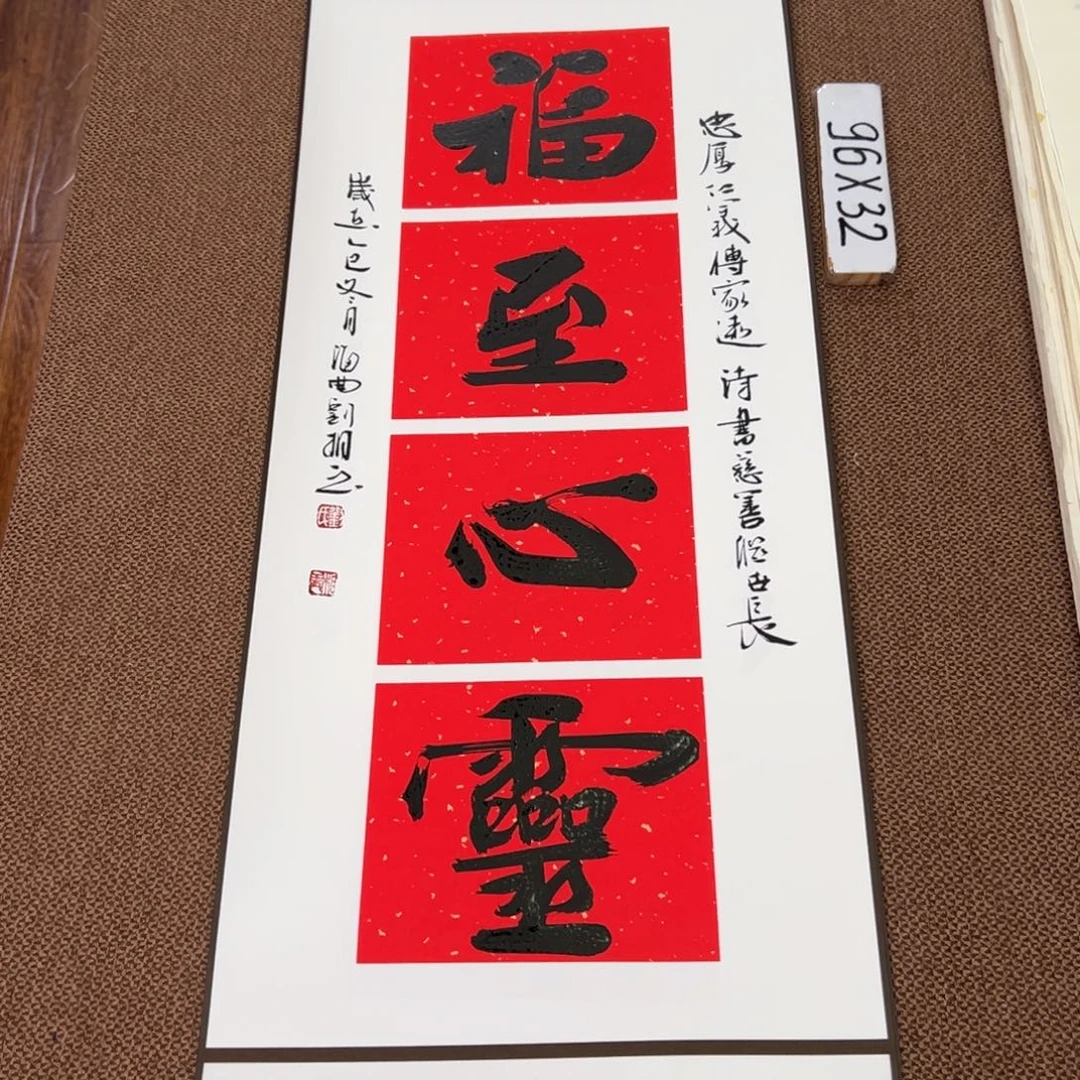 忠厚仁義傳家遠 詩書慈善繼世長
福
至
心
靈
歲在乙巳冬月海曲劉明
96X32